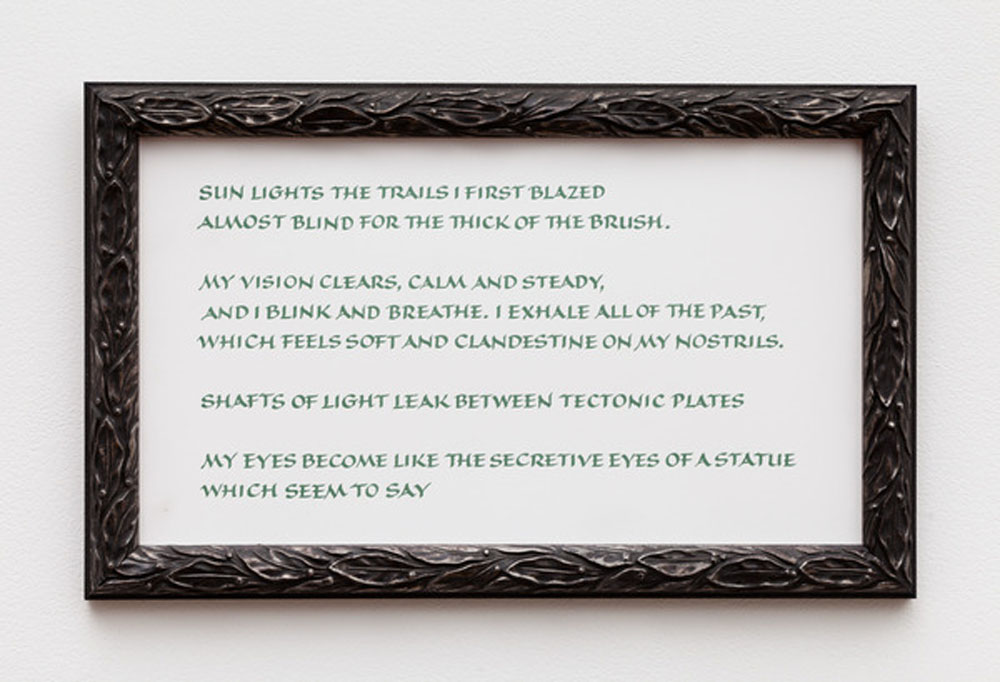 SUN LIGHTS THE TRAILS I FIRST BLAZED
ALMOST BLIND FOR THE THICK OF THE BRUSH.
MY VISION CLEARS, CALM AND STEADY,
AND I BLINK AND BREATHE. I EXHALE ALL OF THE PAST,
WHICH FEELS SOFT AND CLANDESTINE ON MY NOSTRILS.
SHAFTS OF LIGHT LEAK BETWEEN TECTONIC PLATES
MY EYES BECOME LIKE THE SECRETIVE EYES OF A STATUE
WHICH SEEM TO SAY